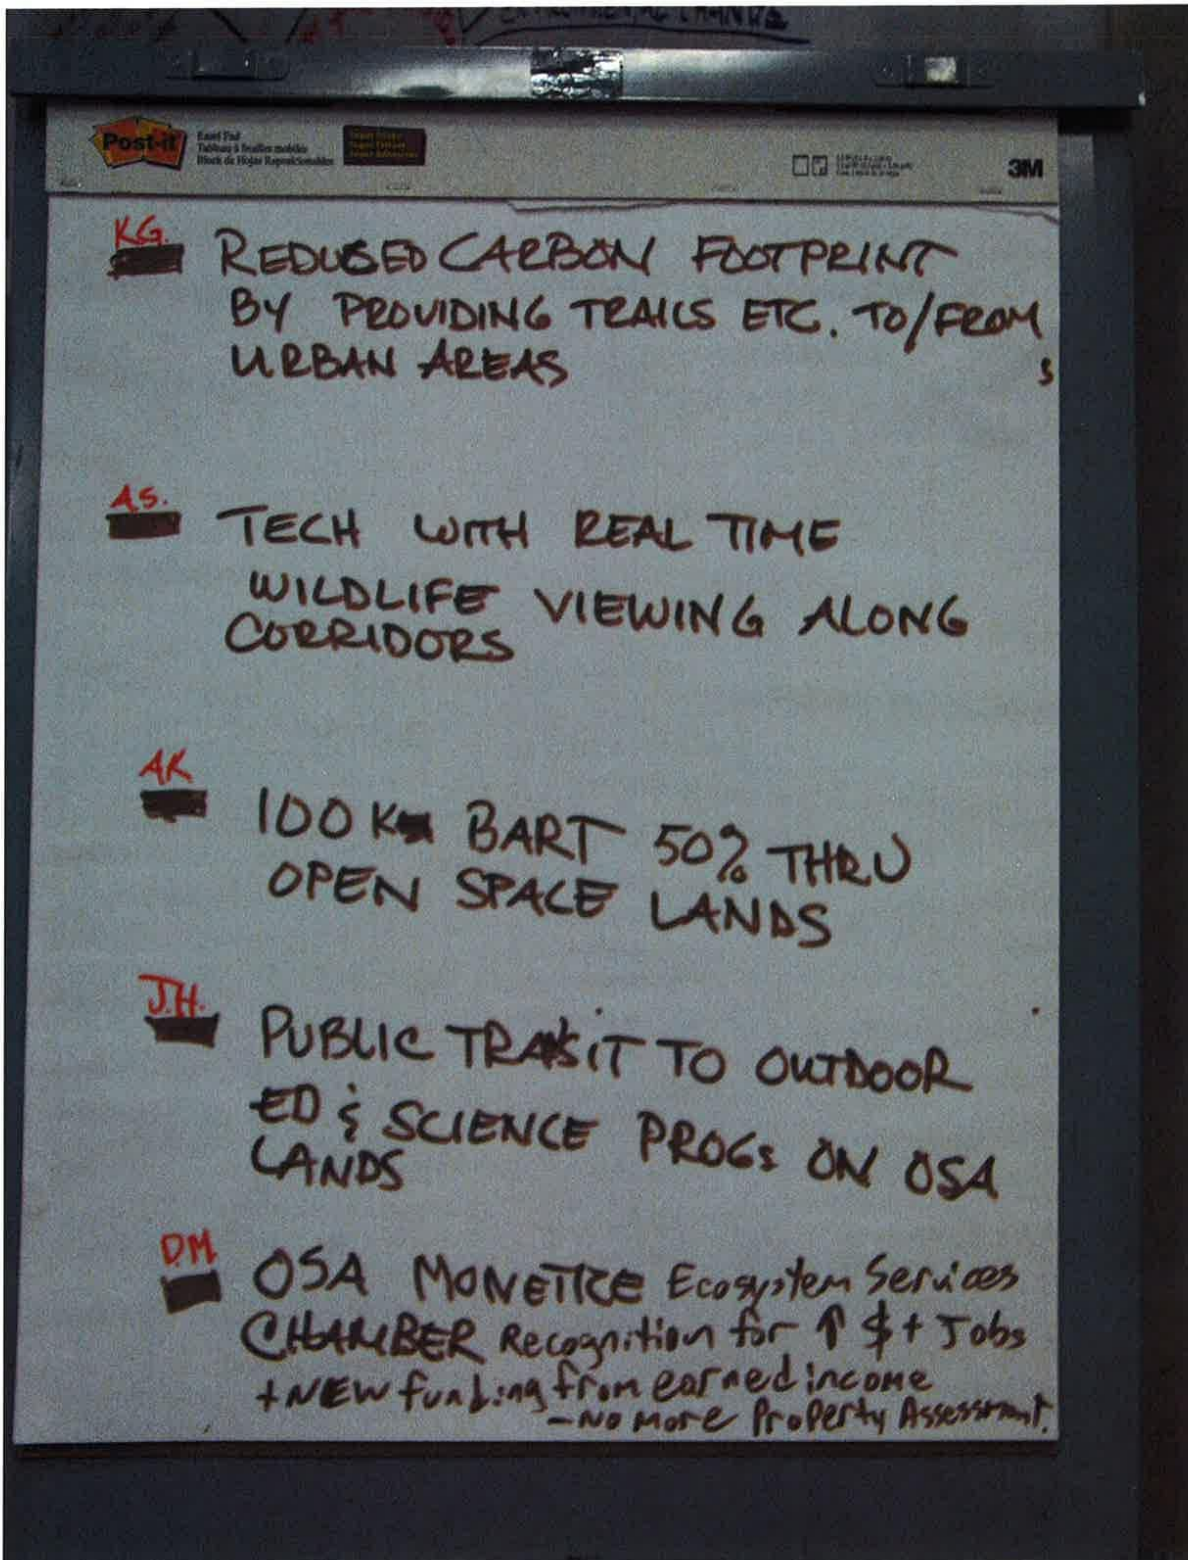 Post-it
Easel Pad
Tableau à feuilles mobiles
Block de Hojas Reposicionables
3M
KG.
REDUSED CARBON FOOTPRINT
BY PROVIDING TRAILS ETC. TO/FROM
URBAN AREAS
S
A.S.
TECH WITH REAL TIME
WILDLIFE VIEWING ALONG
CORRIDORS
AK
100 K BART 50% THRU
OPEN SPACE LANDS
J.H.
PUBLIC TRASIT TO OUTDOOR
ED & SCIENCE PROGS ON OSA
LANDS
DM
OSA MONETIZE Ecosystem Services
CHAMBER Recognition for ↑ $ + Jobs
+ NEW funding from earned income
- NO MORE Property Assessment.